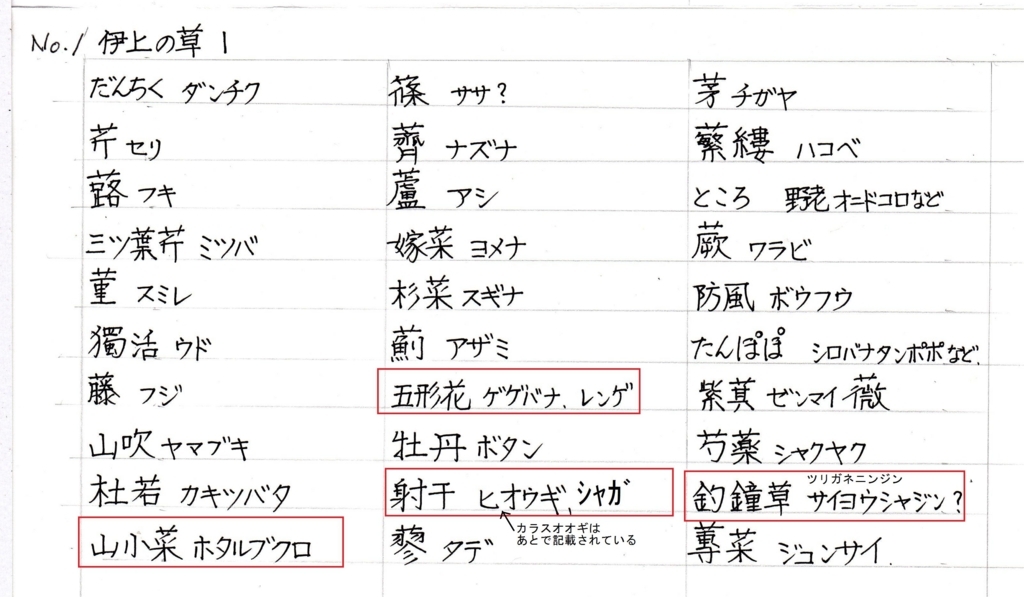 No.1 伊上の草 1
だんちく ダンチク 篠 ササ? 茅 チガヤ
芹 セリ 薺 ナズナ 蘩縷 ハコベ
蕗 フキ 蘆 アシ ところ 野老 オニドコロなど
三ツ葉芹 ミツバ 嫁菜 ヨメナ 蕨 ワラビ
菫 スミレ 杉菜 スギナ 防風 ボウフウ
獨活 ウド 薊 アザミ たんぽぽ シロバナタンポポなど.
藤 フジ 五形花 ゲゲバナ、レンゲ 紫萁 ゼンマイ 薇
山吹 ヤマブキ 牡丹 ボタン 芍薬 シャクヤク
杜若 カキツバタ 射干 ヒオウギ、シャガ 釣鐘草 サイヨウシャジン?
ツリガネニンジン
カラスオオギは
あとで記載されている
山小菜 ホタルブクロ 蓼 タデ 蓴菜 ジュンサイ.